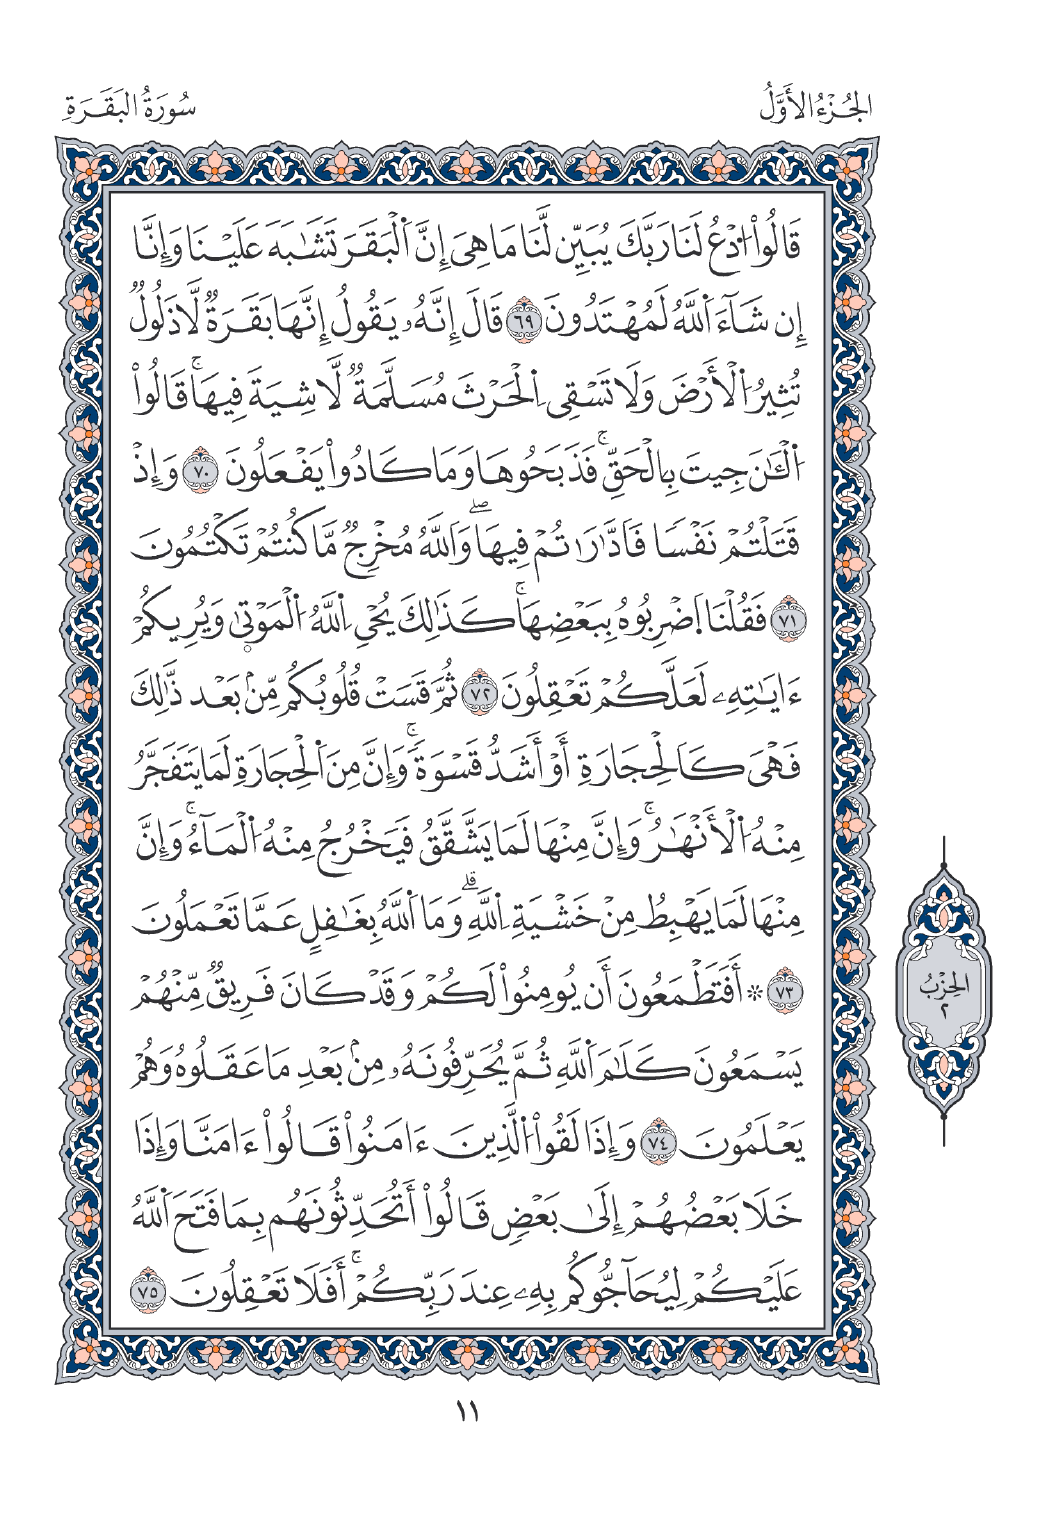 الجُزْءُ الأَوَّلُ
سُورَةُ البَقَرَةِ
قَالُواْ اُ۟دْعُ لَنَا رَبَّكَ يُبَيِّن لَّنَا مَا هِيَ إِنَّ اَ۬لْبَقَرَ تَشَٰبَهَ عَلَيْنَا وَإِنَّا
إِن شَآءَ اَ۬للَّهُ لَمُهْتَدُونَ ٦٩ قَالَ إِنَّهُۥ يَقُولُ إِنَّهَا بَقَرَةٞ لَّا ذَلُولٞ
تُثِيرُ اُ۬لْأَرْضَ وَلَا تَسْقِى اِ۬لْحَرْثَ مُسَلَّمَةٞ لَّا شِيَةَ فِيهَاۚ قَالُواْ
اُ۬لْـَٰٔنَ جِيتَ بِالْحَقِّۚ فَذَبَحُوهَا وَمَا كَادُواْ يَفْعَلُونَ ٧٠ وَإِذْ
قَتَلْتُمْ نَفْسٗا فَادَّٰرَٰتُمْ فِيهَاۖ وَاَللَّهُ مُخْرِجٞ مَّا كُنتُمْ تَكْتُمُونَ
٧١ فَقُلْنَا اَ۪ضْرِبُوهُ بِبَعْضِهَاۚ كَذَٰلِكَ يُحْيِ اِ۬للَّهُ اُ۬لْمَوْت۪يٰ وَيُرِيكُمُۥ
ءَايَٰتِهِۦ لَعَلَّكُمْ تَعْقِلُونَ ٧٢ ثُمَّ قَسَتْ قُلُوبُكُم مِّنۢ بَعْد ذَّٰلِكَ
فَهْيَ كَالْحِجَارَةِ أَوْ أَشَدُّ قَسْوَةٗۚ وَإِنَّ مِنَ اَ۬لْحِجَارَةِ لَمَا يَتَفَجَّرُ
مِنْهُ اُ۬لْأَنْهَٰرُۚ وَإِنَّ مِنْهَا لَمَا يَشَّقَّقُ فَيَخْرُجُ مِنْهُ اُ۬لْمَآءُۚ وَإِنَّ
مِنْهَا لَمَا يَهْبِطُ مِنْ خَشْيَةِ اِ۬للَّهِۗ وَمَا اَ۬للَّهُ بِغَٰفِلٍ عَمَّا تَعْمَلُونَ
٧٣ ۞ أَفَتَطْمَعُونَ أَن يُومِنُواْ لَكُمْ وَقَدْ كَانَ فَرِيقٞ مِّنْهُمْ
يَسْمَعُونَ كَلَٰمَ اَ۬للَّهِ ثُمَّ يُحَرِّفُونَهُۥ مِنۢ بَعْدِ مَا عَقَلُوهُ وَهُمْ
يَعْلَمُونَ ٧٤ وَإِذَا لَقُواْ اُ۬لَّذِينَ ءَامَنُواْ قَالُواْ ءَامَنَّا وَإِذَا
خَلَا بَعْضُهُمْ إِلَىٰ بَعْضٖ قَالُواْ أَتُحَدِّثُونَهُم بِمَا فَتَحَ اَ۬للَّهُ
عَلَيْكُمْ لِيُحَآجُّوكُم بِهِۦ عِندَ رَبِّكُمْۚ أَفَلَا تَعْقِلُونَ ٧٥
الحِزْبُ
٢
١١